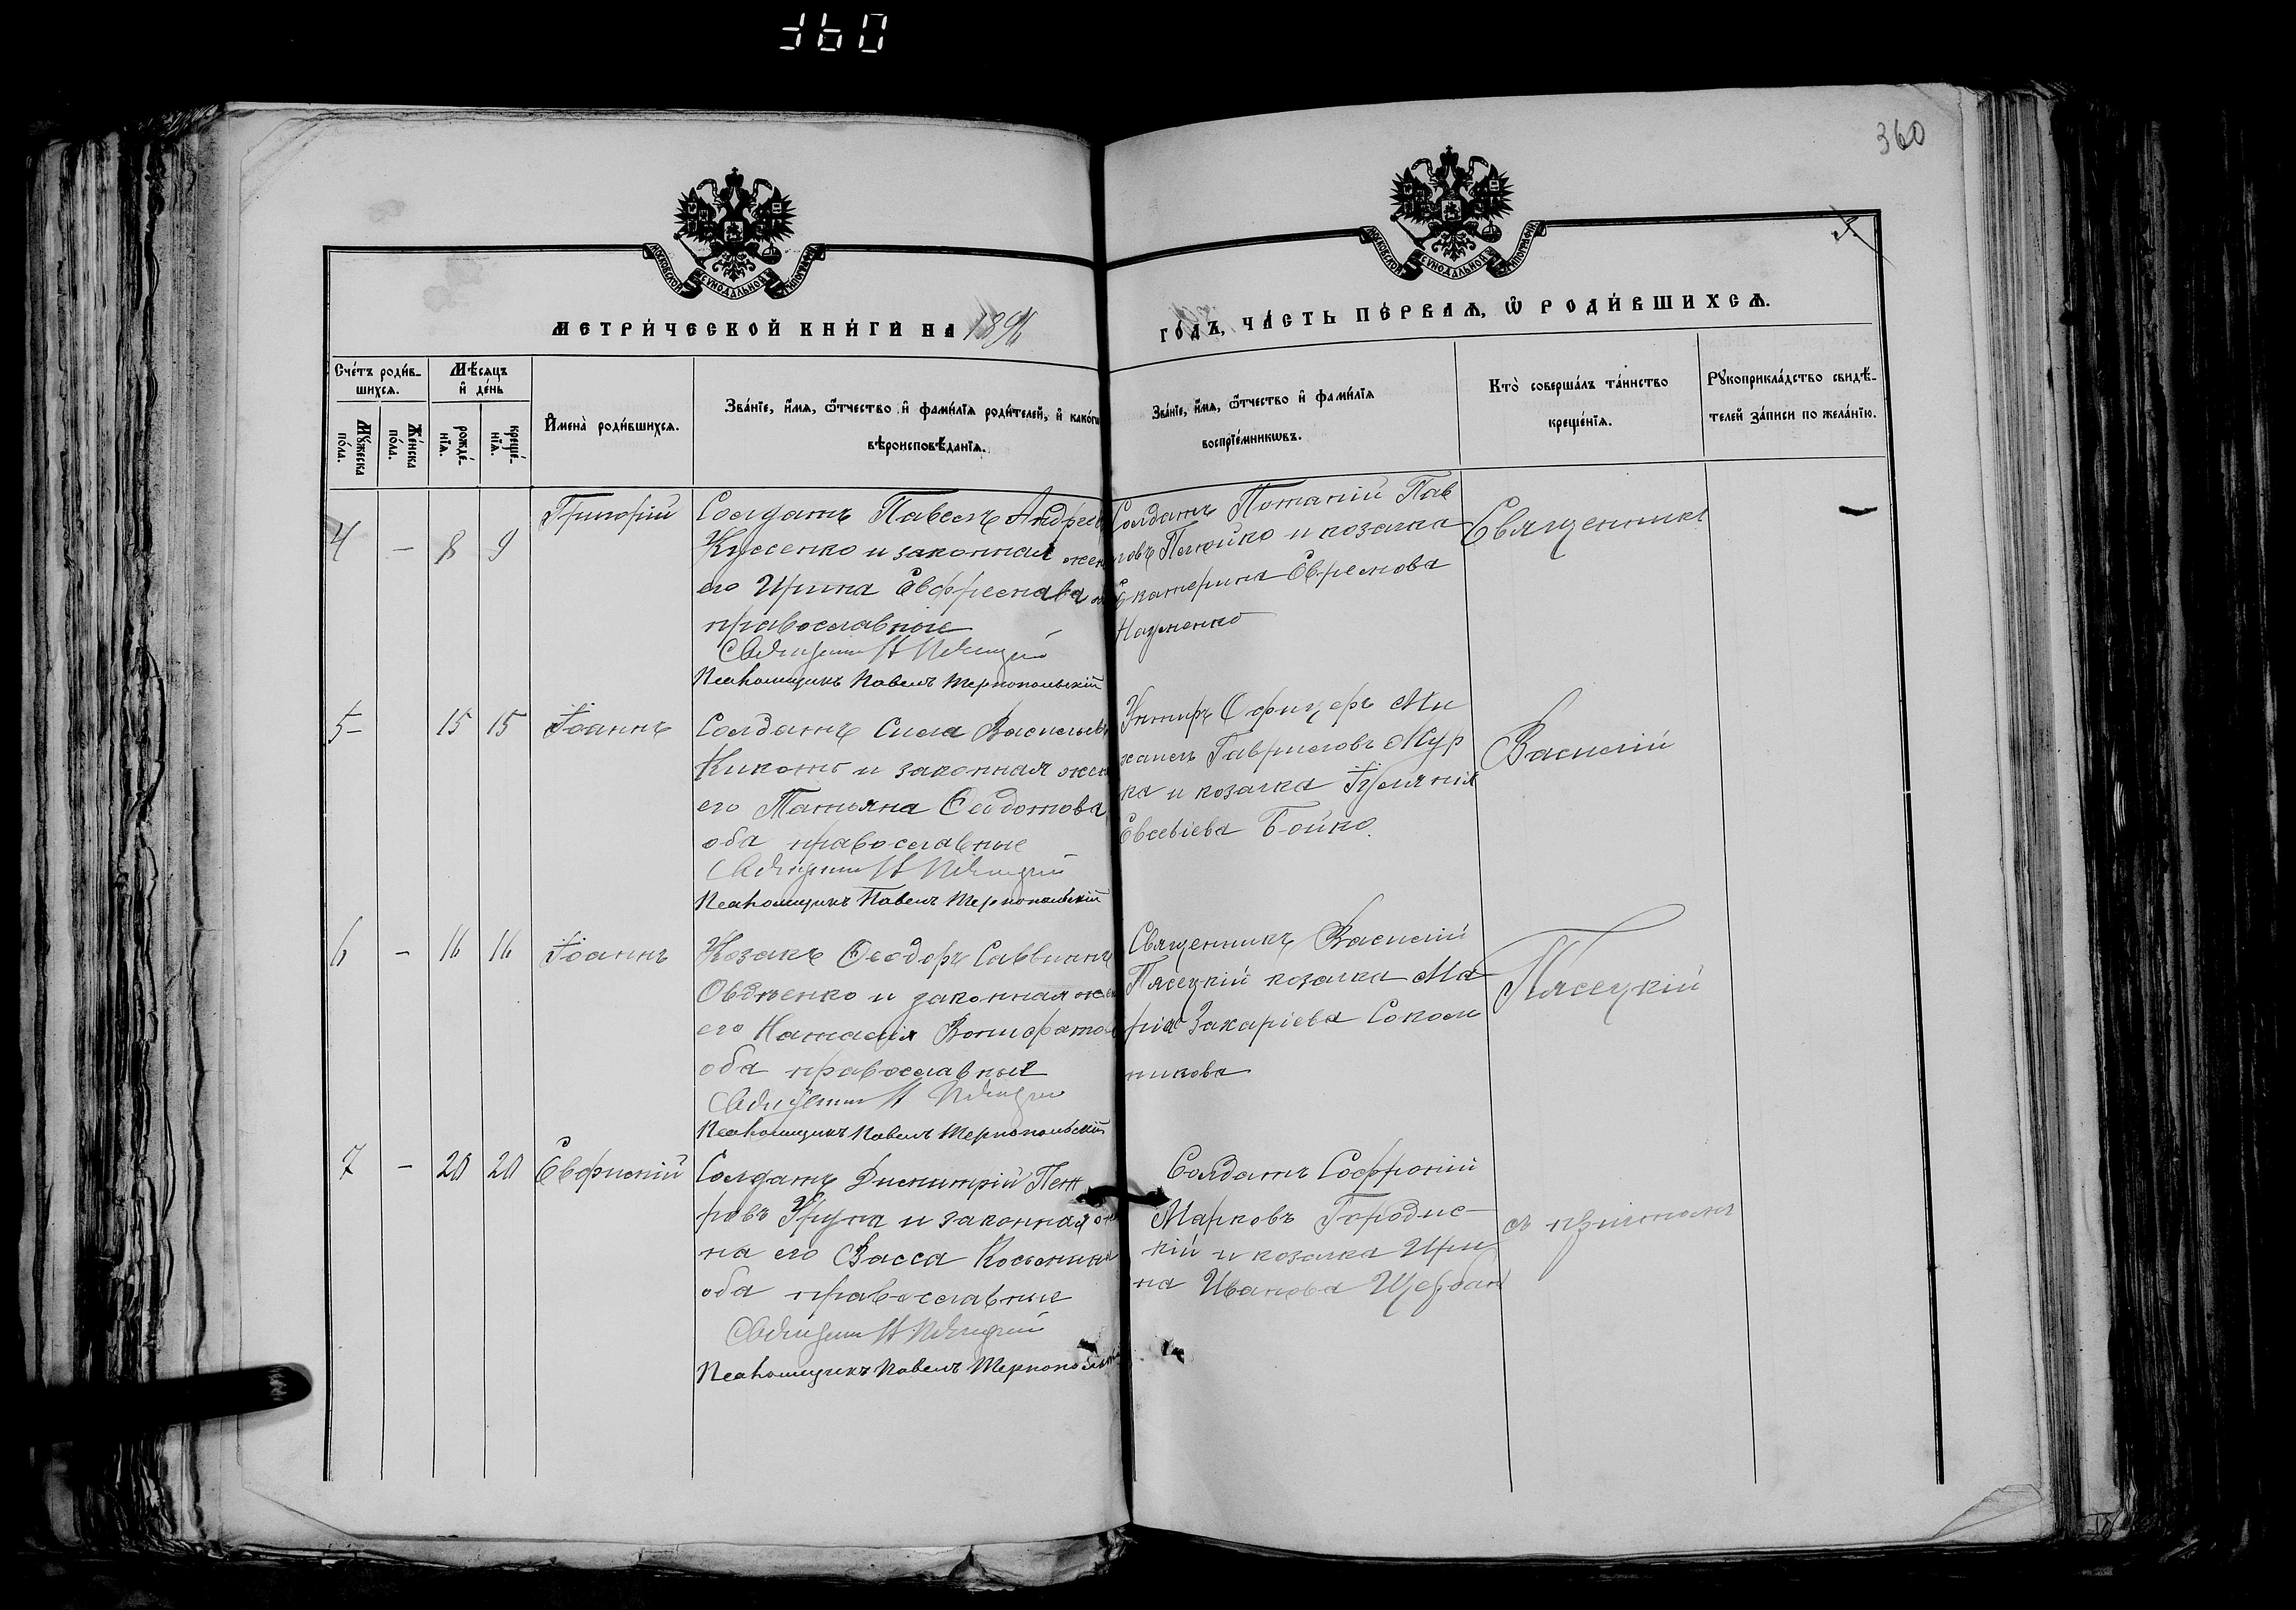 360
360
МОСКОВСКОЙ СУНОДАЛЬНОЙ ТИПОГРАФІИ
МОСКОВСКОЙ СУНОДАЛЬНОЙ ТИПОГРАФІИ
МЕТРИ́ЧЕСКОЙ КНИ́ГИ НА 189
ГО́ДЪ, ЧА́СТЬ ПЕ́РВАѦ, Ѡ РОДИ́ВШИХСѦ.
Сче́тъ роди́в-
шихсѧ.
Мꙋ́жеска по́ла.
Же́нска по́ла.
Мѣ́сѧцъ и де́нь
рожде́-нїѧ.
креще́-нїѧ.
И҆мена̀ роди́вшихсѧ.
Зва́нїе, и҆́мѧ, ѻ҆́тчество и҆ фами́лїѧ роди́телей, и҆ како́гѡ
вѣроисповѣ́данїѧ.
Зва́нїе, и҆́мѧ, ѻ҆́тчество и҆ фами́лїѧ
воспрїе́мникѡвъ.
Кто̀ соверша́лъ та́инство
креще́нїѧ.
Рꙋкоприкла́дство свидѣ́-
телей за́писи по жела́нїю.
4 – 8 9 Григорій
Солдатъ Павелъ Андреев
Куценко и законная жен
его Ирина Евфремова
православные
Псаломщикъ Павелъ Тернопольскій
Солдатъ Потапій Пав
ловъ и козачка
Екатерина Ефремова
Науменко
Священникъ
5 – 15 15 Іоаннъ
Солдатъ Сила Васильевъ
Кикоть и законная жен
его Татьяна Ѳеодотова
оба православные
Псаломщикъ Павелъ Тернопольскій
Унтиръ Офицеръ Ми
хаилъ Гавриловъ Мур
ка и козачка Іуліянія
Евсевіева Бойко.
Василій
6 – 16 16 Іоаннъ
Козакъ Ѳеодоръ Саввинъ
Овдѣенко и законная жен
его Наталія Вонифатов
оба православные
Псаломщикъ Павелъ Тернопольскій
Священникъ Василій
Пясецкій козачка Ма
рія Захаріева Соколь
никова
Пясецкій
7 – 20 20 Евфимій
Солдатъ Димитрій Пет
ровъ и законная же
на его Васса Косьмина
оба православные
Псаломщикъ Павелъ Тернопольскій
Солдатъ Софроній
Марковъ Городис-
кій и козачка Ири
на Иванова Щербан
съ причтомъ